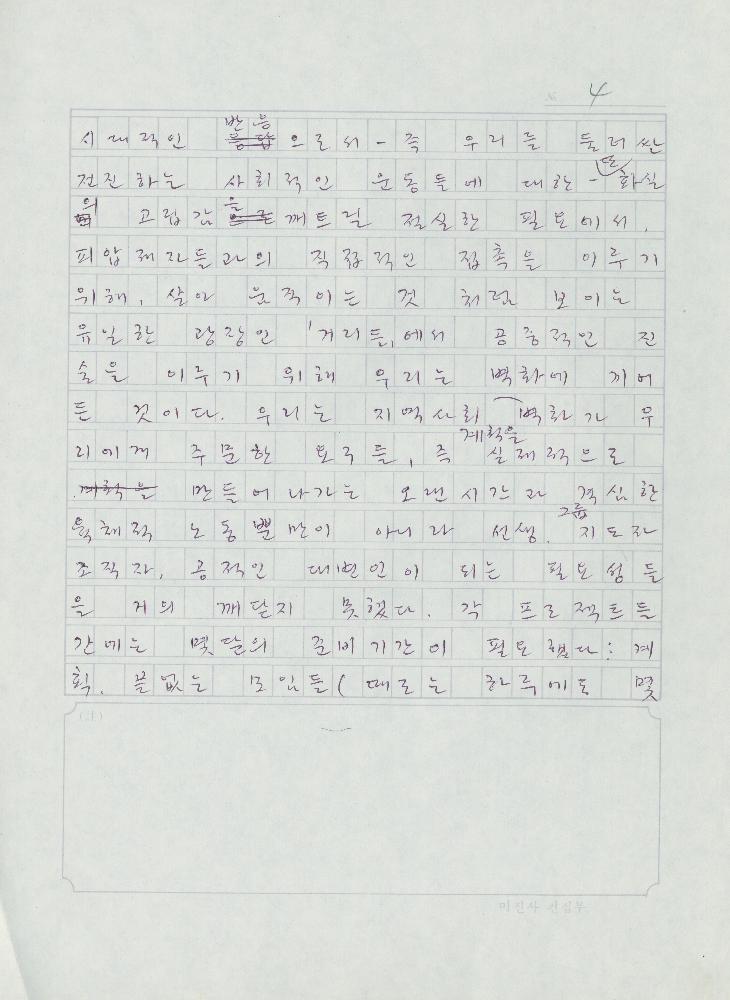 № 4
시대적인 반응으로서 - 즉 우리를 둘러싼
전진하는 사회적인 운동들에 대한 - 또 화실
의 고립감을 깨트릴 절실한 필요에서.
피압제자들과의 직접적인 접촉을 이루기
위해, 살아 움직이는 것 처럼 보이는
유일한 광장인 '거리들'에서 공중적인 진
술을 이루기 위해 우리는 벽화에 끼어
든 것이다. 우리는 지역사회 벽화가 우
리에게 주문한 요구들, 즉 계획을 실제적으로
만들어 나가는 오랜시간과 격심한
육체적 노동뿐만이 아니라 선생. 그룹 지도자
조직자, 공적인 대변인이 되는 필요성들
을 거의 깨닫지 못했다. 각 프로젝트들
간에는 몇달의 준비기간이 필요했다: 계
획. 끝없는 모임들( 때로는 하루에도 몇
(21)
미진사 편집부